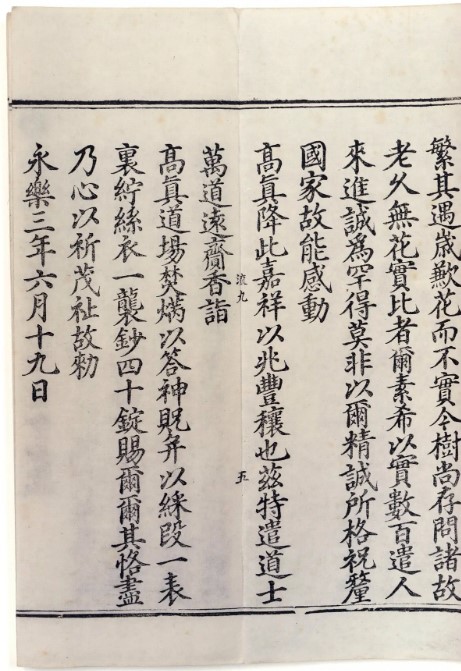 繁其遇歲歉花而不實今樹尚存問諸故
老久無花實比者爾素希以實數百遣人
來進誠為罕得莫非以爾精誠所格祝釐
國家故能感動
高眞降此嘉祥以兆豐穰也茲特遣道士
萬道遠齎香詣
高眞道場焚爇以答神貺并以綵段一表
裏紵絲衣一襲鈔四十錠賜爾爾其恪盡
乃心以祈茂祉故勑
永樂三年六月十九日
五